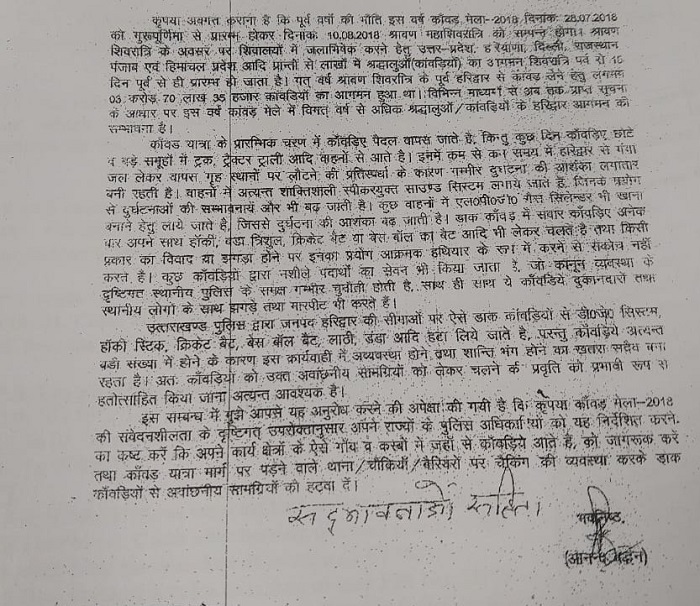 कृपया अवगत कराना है कि पूर्व वर्षो की भाँति इस वर्ष काँवड़ मेला-2018, दिनांकः 28.07.2018
की गुरूपूर्णिमा से प्रारम्भ होकर दिनांकः 10.08.2018 श्रावण महाशिवरात्रि को सम्पन्न होगा। श्रावण
शिवरात्रि के अवसर पर शिवालयों में जलाभिषेक करने हेतु उत्तर-प्रदेश, हरियाणा, दिल्ली, राजस्थान
पंजाब एवं हिमांचल प्रदेश आदि प्रान्तों से लाखों में श्रद्धालुओं(काँवड़ियों) का आगमन शिवरात्रि पर्व से 15
दिन पूर्व से ही प्रारम्भ हो जाता है। गत् वर्ष श्रावण शिवरात्रि के पूर्व हरिद्वार से काँवड़ लेने हेतु लगभग
03 करोड़ 70 लाख 35 हजार काँवडियों का आगमन हुआ था। विभिन्न माध्यमों से अब तक प्राप्त सूचना
के आधार पर इस वर्ष काँवड़ मेले में विगत् वर्ष से अधिक श्रद्धालुओं/काँवड़ियों के हरिद्वार आगमन की
सम्भावना है।
काँवड़ यात्रा के प्रारम्भिक चरण में काँवड़िए पैदल वापस जाते है, किन्तु कुछ दिन काँवड़िए छोटे
व बड़े समूहों में ट्रक, ट्रैक्टर ट्राली आदि वाहनों से आते है। इनमें कम से कम समय में हरिद्वार से गंगा
जल लेकर वापस गृह स्थानों पर लौटने की प्रतिस्पर्धा के कारण गम्भीर दुर्घटना की आशंका लगातार
बनी रहती है। वाहनों में अत्यन्त शाक्तिशाली स्पीकरयुक्त साउण्ड सिस्टम लगाये जाते है, जिनके प्रयोग
से दुर्घटनाओं की सम्भावनायें और भी बढ़ जाती है। कुछ वाहनों में एल0पी0जी0 गैस सिलेन्डर भी खाना
बनाने हेतु लाये जाते है, जिससे दुर्घटना की आशंका बढ जाती है। डाक काँवड़ में सवार काँवड़िए अनेक
बार अपने साथ हॉकी, डंडा, त्रिशूल, क्रिकेट बैट या बेस बॉल का बैट आदि भी लेकर चलते है तथा किसी
प्रकार का विवाद या झगड़ा होने पर इनका प्रयोग आक्रमक हथियार के रूप में करने से संकोच नहीं
करते है। कुछ काँवड़ियों द्वारा नशीले पदार्थो का सेवन भी किया जाता है, जो कानून व्यवस्था के
दृष्टिगत स्थानीय पुलिस के समक्ष गम्भीर चुनौती होती है, साथ ही साथ ये काँवड़िये दुकानदारों तथा
स्थानीय लोगों के साथ झगड़े तथा मारपीट भी करते हैं।
उत्तराखण्ड पुलिस द्वारा जनपद हरिद्वार की सीमाओं पर ऐसे डाक काँवड़ियों से डी0जे0 सिस्टम,
हॉकी स्टिक, क्रिकेट बैट, बेस बॉल बैट, लाठी, डंडा आदि हटा लिये जाते है, परन्तु काँवड़िये अत्यन्त
बडी संख्या में होने के कारण इस कार्यवाही में अव्यवस्था होने तथा शान्ति भंग होने का खतरा सदैव बना
रहता है। अतः काँवड़ियों को उक्त अवांछनीय सामग्रियों को लेकर चलने के प्रवृति को प्रभावी रूप से
हतोत्साहित किया जाना अत्यन्त आवश्यक है।
इस सम्बन्ध में मुझे आपसे यह अनुरोध करने की अपेक्षा की गयी है कि कृपया काँवड़ मेला-2018
की संवेदनशीलता के दृष्टिगत् उपरोक्तानुसार अपने राज्यों के पुलिस अधिकारियों को यह निर्देशित करने
का कष्ट करें कि अपने कार्य क्षेत्रों के ऐसे गाँव व कस्बों में जहाँ से काँवड़िये आते है, को जागरूक करें
तथा काँवड़ यात्रा मार्ग पर पड़ने वाले थाना/चौकियों/बैरियरों पर चैकिंग की व्यवस्था करके डाक
काँवड़ियों से अवांछनीय सामग्रियों को हटवा दें।
सद्भावनाओं सहित।
भवनिष्ठ,
(आनन्द बर्द्धन)